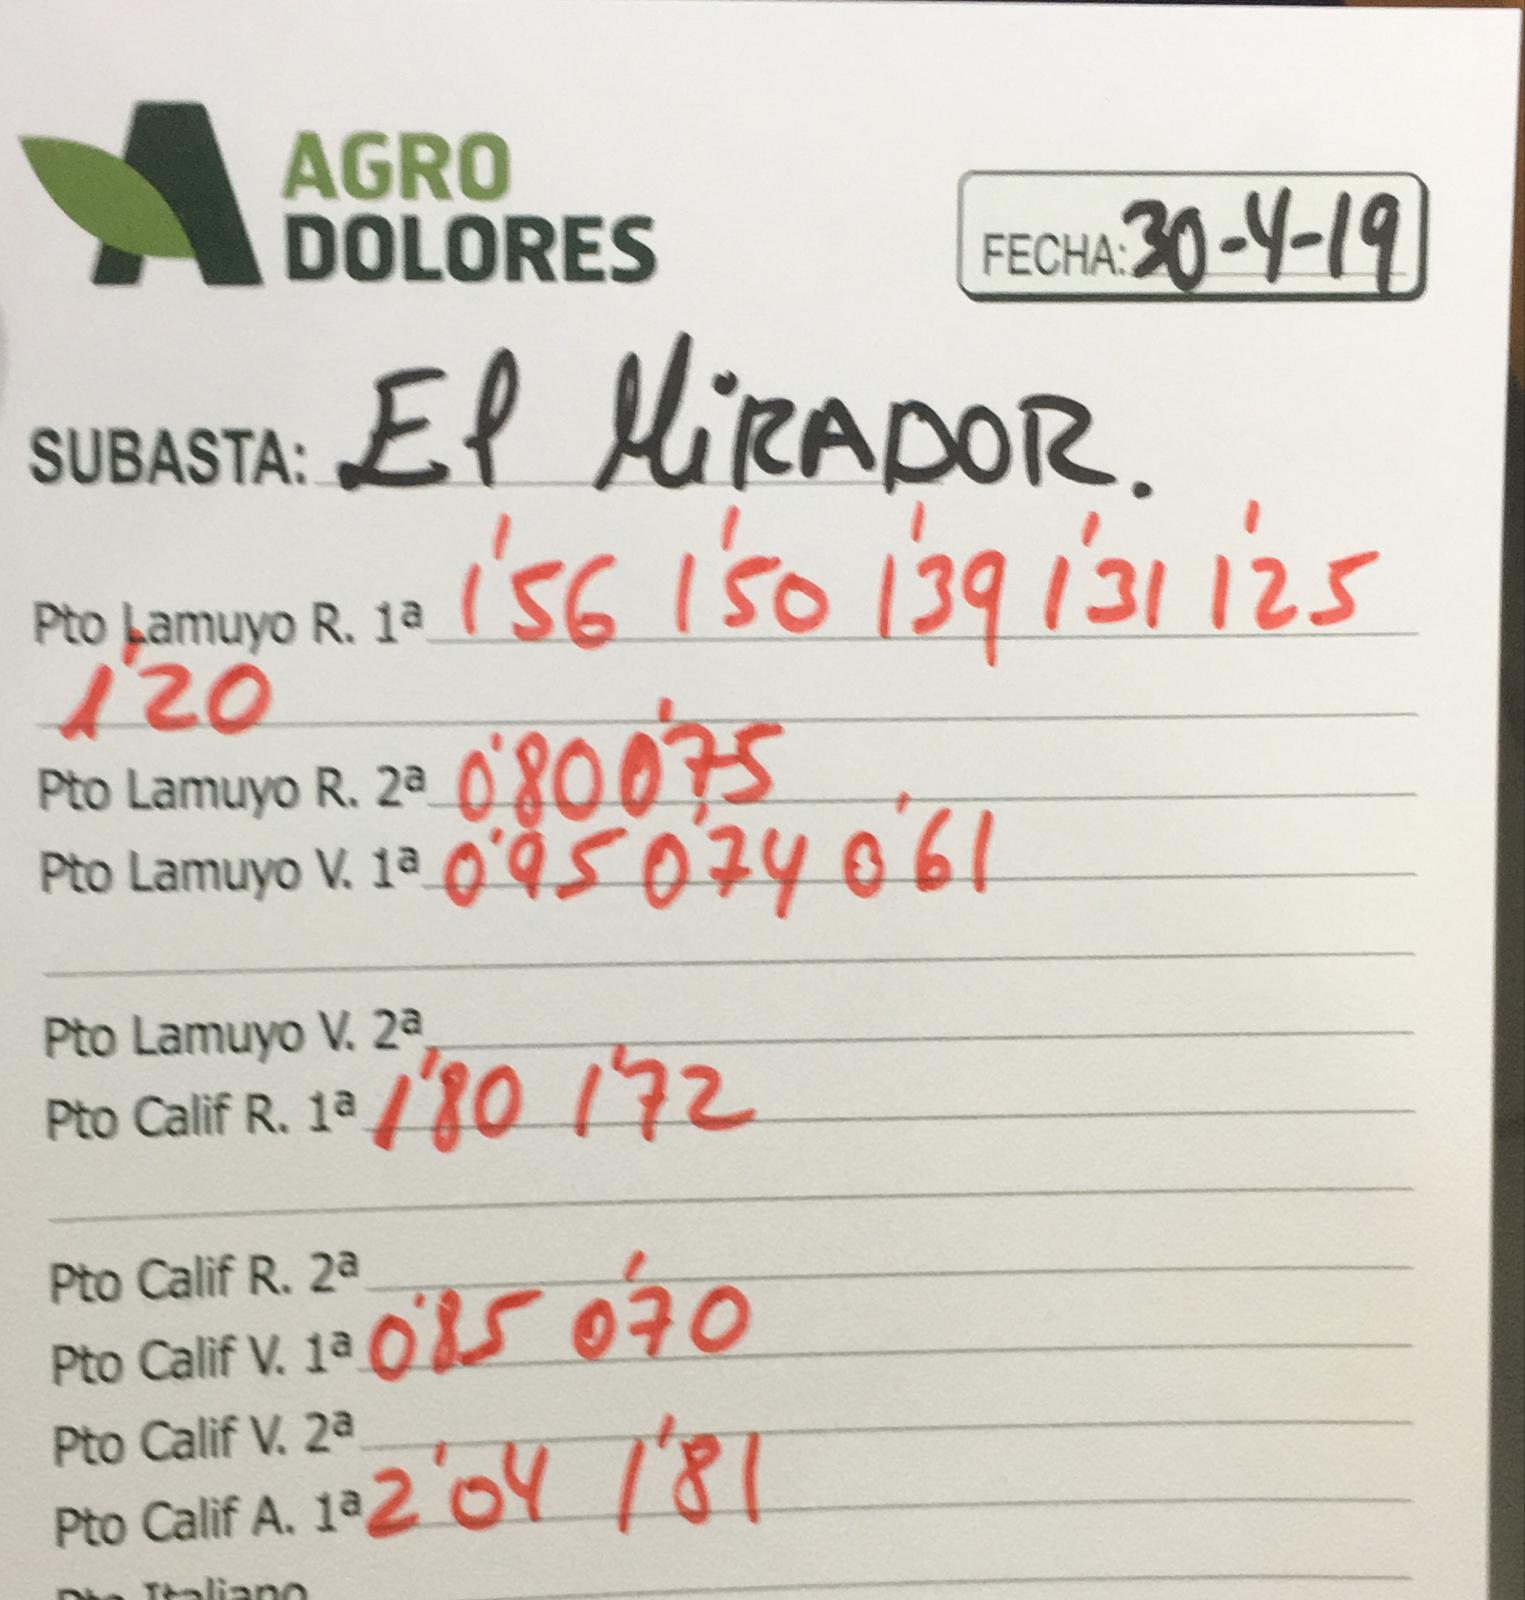 AGRO
DOLORES
FECHA: 30-4-19
SUBASTA: El MiRADOR.
Pto Lamuyo R. 1ª 1'56 1'50 1'39 1'31 1'25
1'20
Pto Lamuyo R. 2ª 0'80 0'75
Pto Lamuyo V. 1ª 0'95 0'74 0'61
Pto Lamuyo V. 2ª
Pto Calif R. 1ª 1'80 1'72
Pto Calif R. 2ª
Pto Calif V. 1ª 0'85 0'70
Pto Calif V. 2ª
Pto Calif A. 1ª 2'04 1'81
Pto Italiano